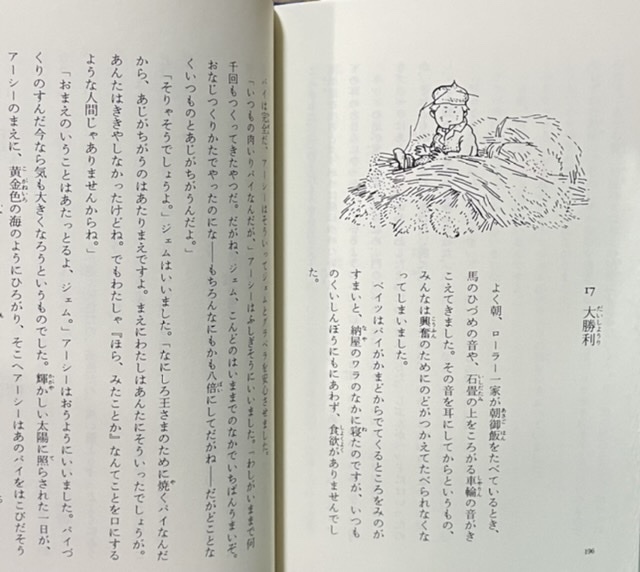 17 大勝利
よく朝、ローラー一家が朝御飯をたべているとき、
馬のひづめの音や、石畳の上をころがる車輪の音がき
こえてきました。その音を耳にしてからというもの、
みんなは興奮のためにのどがつかえてたべられなくな
ってしまいました。
ベイツはパイがかまどからでてくるところをみのが
すまいと、納屋のワラのなかに寝たのですが、いつも
のくいしんぼうにもにあわず、食欲がありませんでし
た。
196
パイは完全だ、アーシーはそういってジェムとアラベラを安心させました。
「いつもの肉いりパイなんだが、」アーシーはふしぎそうにいいました。「わしがいままで何
千回もつくってきたやつだ。だがね、ジェム、こんどのはいままでのなかでいちばんうまいぞ。
おなじつくりかたでやったのにな――もちろんなにもかも八倍にしてだがね――だがどことな
くいつものとあじがちがうんだよ。」
「そりゃそうでしょうよ。」ジェムはいいました。「なにしろ王さまのために焼くパイなんだ
から、あじがちがうのはあたりまえですよ。まえにわたしはあんたにそういったでしょうが。
あんたはききやしなかったけどね。でもわたしゃ『ほら、みたことか』なんてことを口にする
ような人間じゃありませんからね。」
「おまえのいうことはあたっとるよ、ジェム。」アーシーはおうようにいいました。パイづ
くりのすんだ今なら気も大きくなろうというものでした。輝かしい太陽に照らされた一日が、
アーシーのまえに、黄金色の海のようにひろがり、そこへアーシーはあのパイをはこびだそう